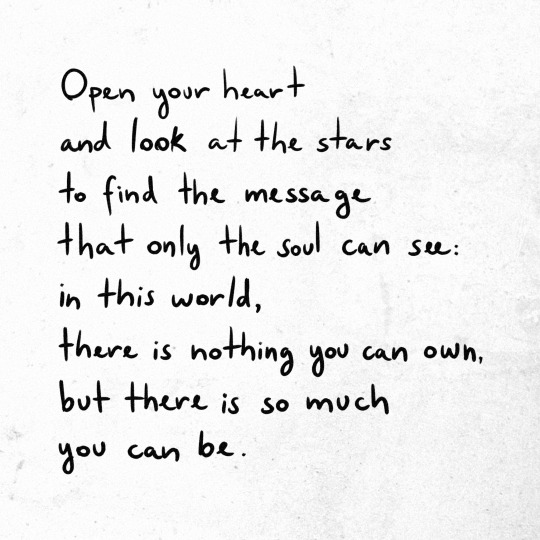 Open your heart
and look at the stars
to find the message
that only the soul can see:
in this world,
there is nothing you can own,
but there is so much
you can be.